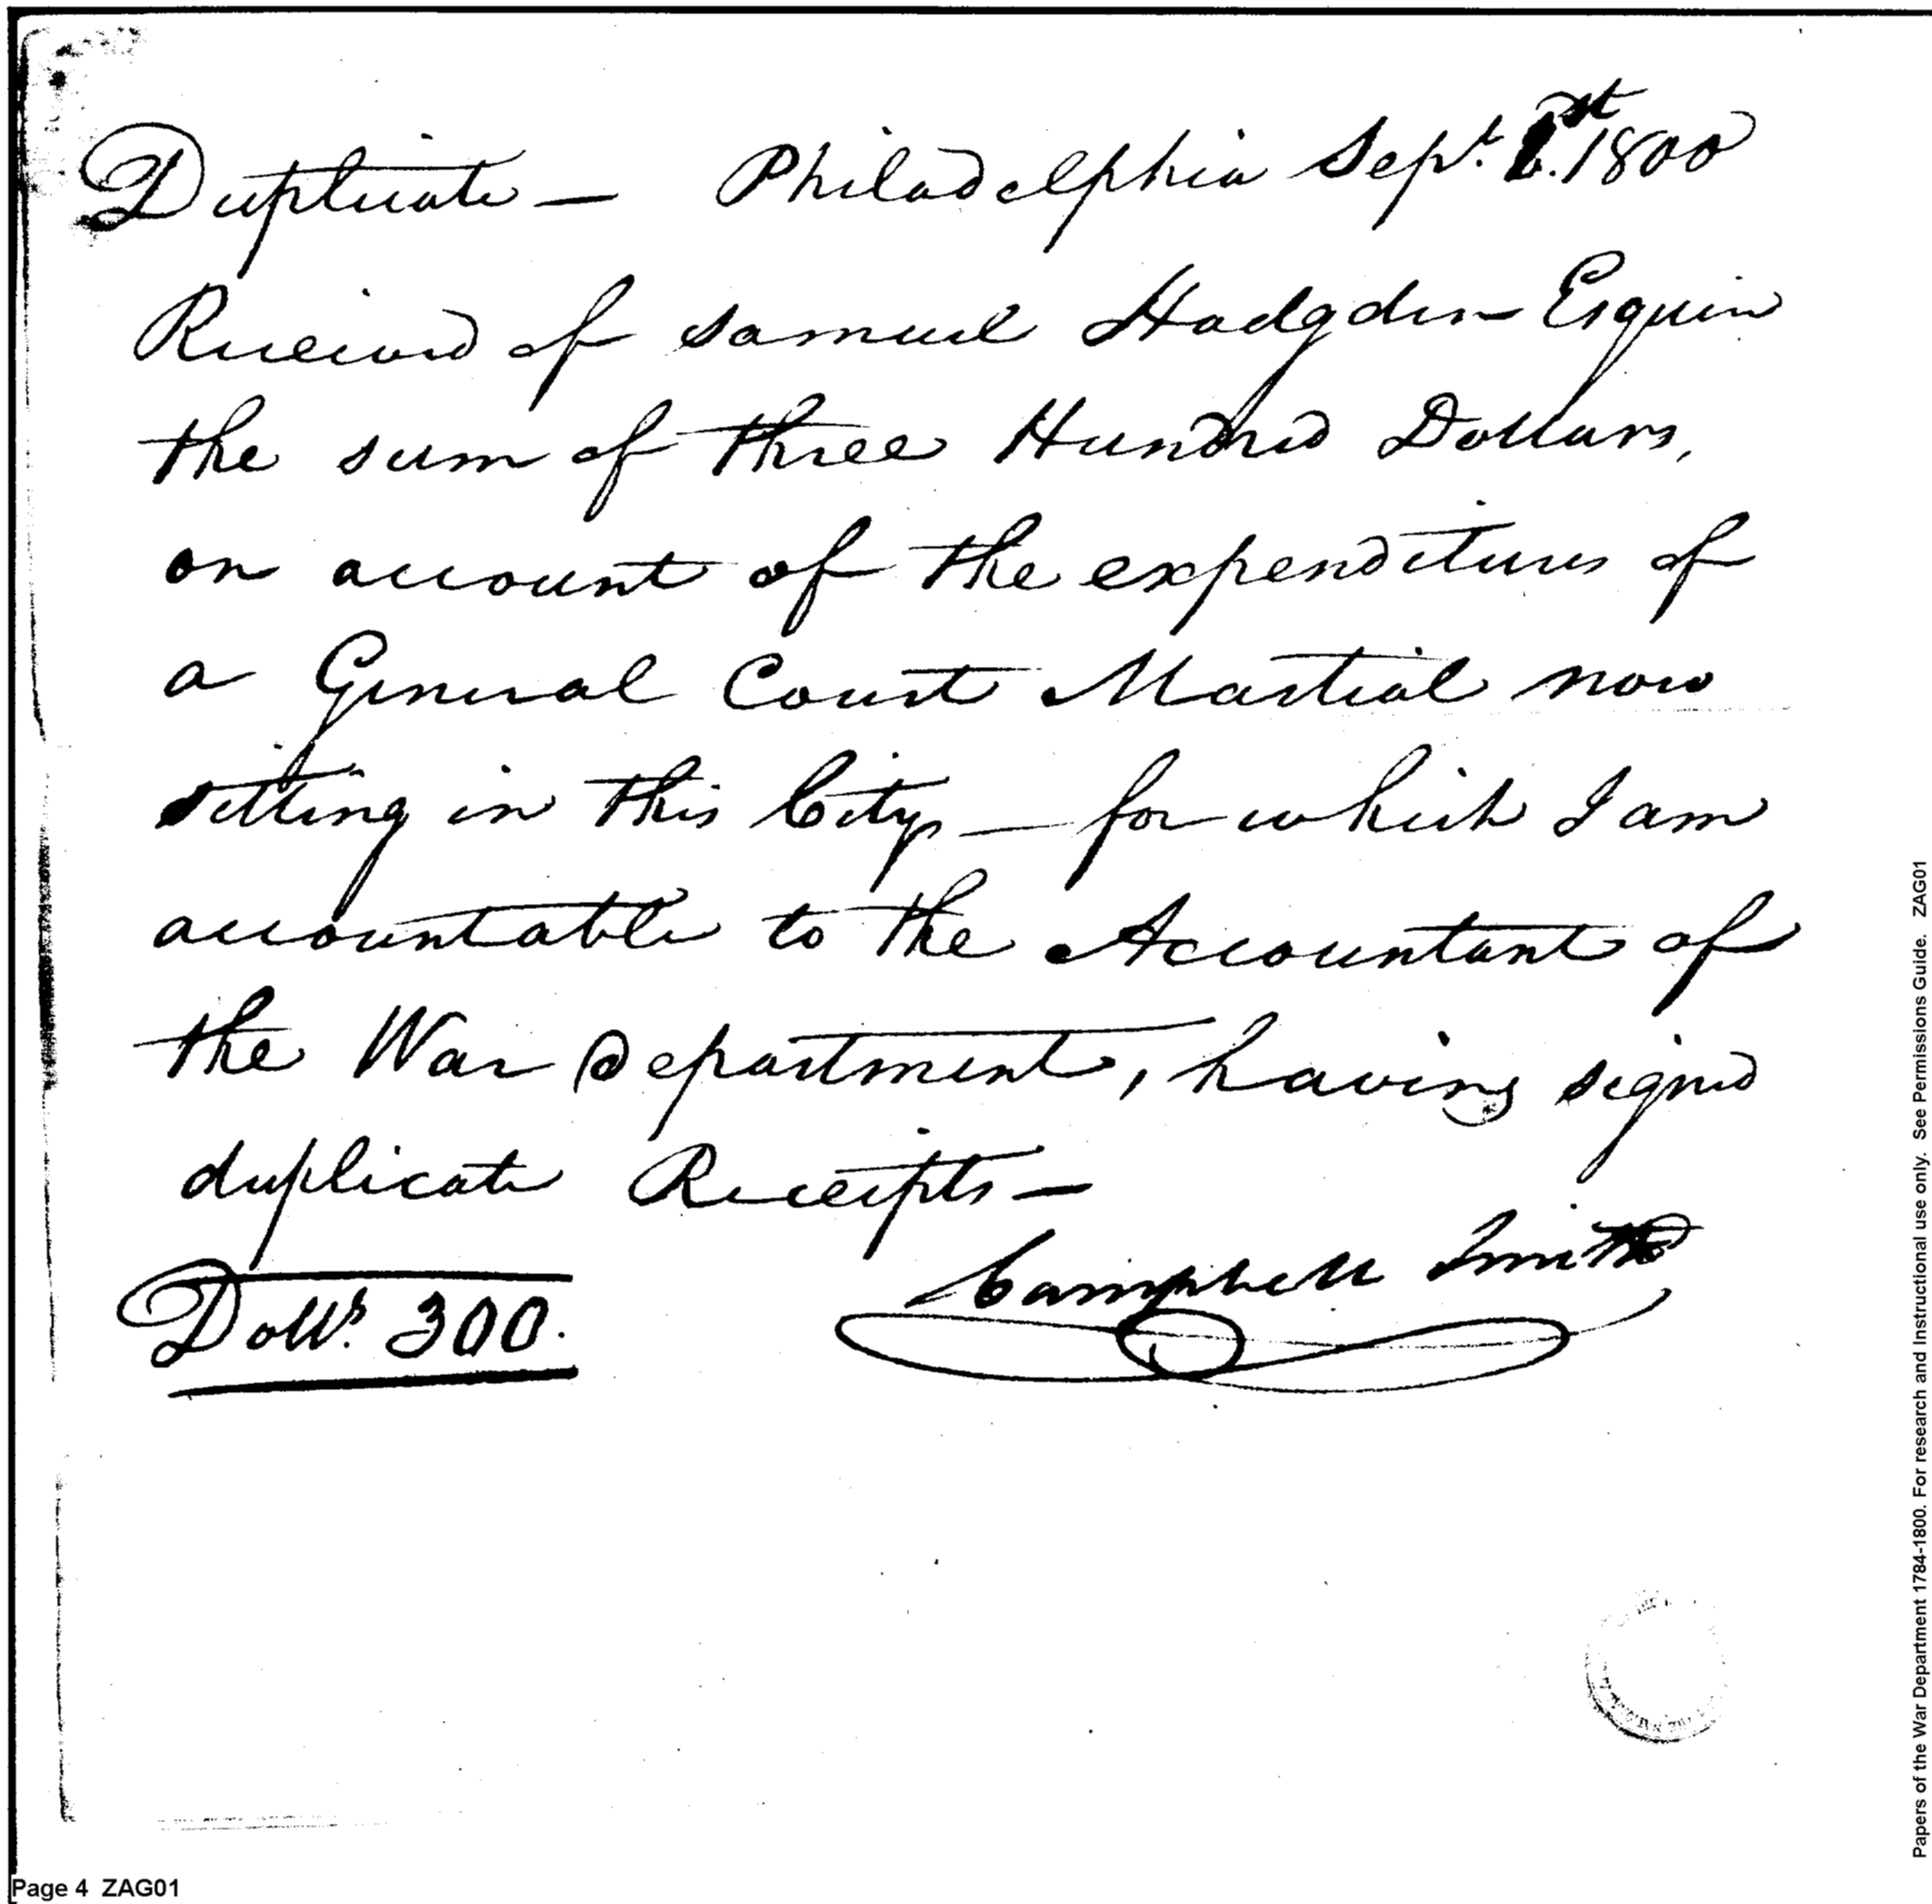 Duplicate — Philadelphia Sept. 1st. 1800
Received of Samuel Hodgdon Esquire
the sum of three Hundred Dollars,
on account of the expenditures of
a General Court Martial now
sitting in this City — for which I am
accountable to the Accountant of
the War Department, having signed
duplicate Receipts —
Campbell Smith
Dolls. 300.
Page 4 ZAG01
Papers of the War Department 1784-1800. For research and Instructional use only. See Permissions Guide. ZAG01